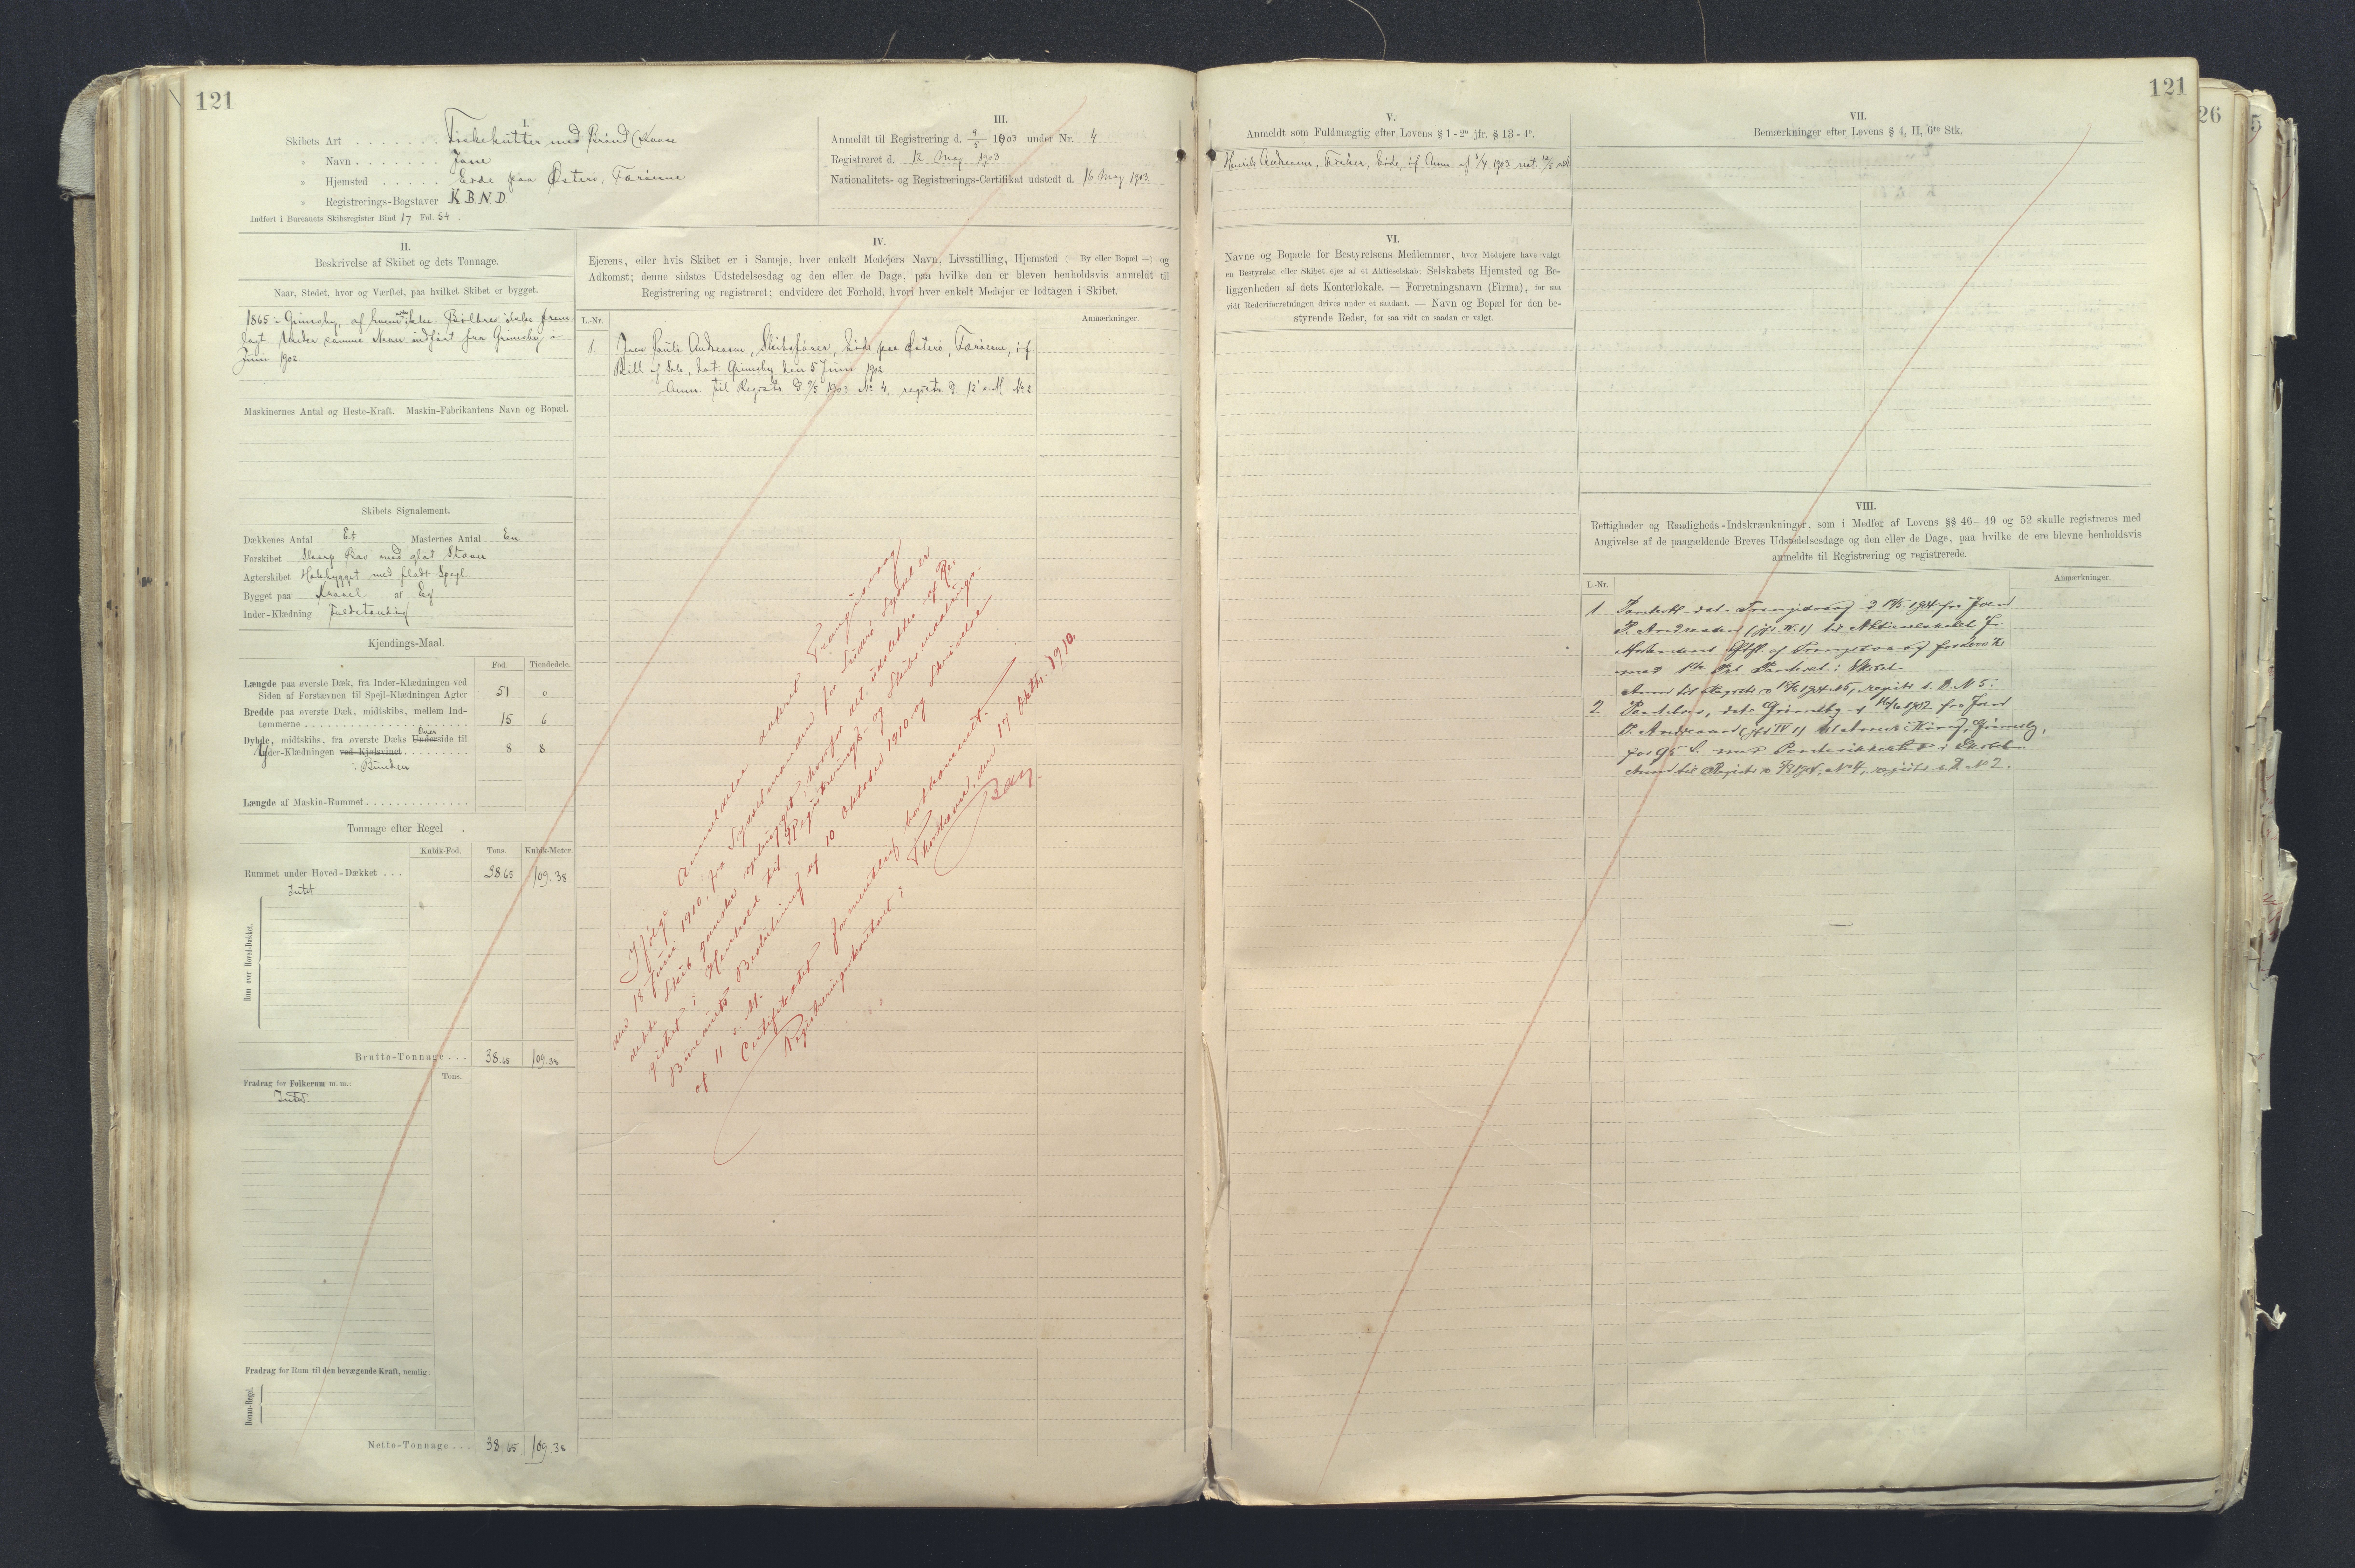 121
I.
Skibets Art . . . . . . . Fiskekutter med Brønd (Kvase
" Navn . . . . . . . Jane
" Hjemsted . . . . . Eide paa Østerø, Færøerne
" Registrerings-Bogstaver K B N D
Indført i Bureauets Skibsregister Bind 17 Fol. 54.
III.
Anmeldt til Registrering d. 9/5 1903 under Nr. 4
Registreret d. 12 May 1903
Nationalitets- og Registrerings-Certifikat udstedt d. 16 May 1903
II.
Beskrivelse af Skibet og dets Tonnage.
Naar, Stedet, hvor og Værftet, paa hvilket Skibet er bygget.
1865 i Grimsby, af hvem vides ikke. Bilbrev ikke frem-
lagt. Under samme Navn indført fra Grimsby i
Juni 1902.
Maskinernes Antal og Heste-Kraft. Maskin-Fabrikantens Navn og Bopæl.
Skibets Signalement.
Dækkenes Antal Et Masternes Antal En
Forskibet Skarp Bov med glat Stævn
Agterskibet Hækbygget med fladt Spejl
Bygget paa Kravel af Eg
Inder-Klædning Fuldstændig
Kjendings-Maal.
Fod. Tiendedele.
Længde paa øverste Dæk, fra Inder-Klædningen ved
Siden af Forstævnen til Spejl-Klædningen Agter 51 0
Bredde paa øverste Dæk, midtskibs, mellem Ind-
tømmerne . . . . . . 15 6
Dybde, midtskibs, fra øverste Dæks Underside til Over
Yder-Klædningen ved Kjølsvinet . . . . . . 8 8
i Bunden
Længde af Maskin-Rummet . . . . . .
Tonnage efter Regel .
Kubik-Fod. Tons. Kubik-Meter.
Rummet under Hoved-Dækket . . . 38.65 109.38
Intet
Rum over Hoved-Dækket.
Brutto-Tonnage . . . 38.65 109.38
Tons.
Fradrag for Folkerum m. m.:
Intet
Fradrag for Rum til den bevægende Kraft, nemlig:
Donau-Regel.
Netto-Tonnage . . . 38.65 109.38
IV.
Ejerens, eller hvis Skibet er i Sameje, hver enkelt Medejers Navn, Livsstilling, Hjemsted (— By eller Bopæl —) og
Adkomst; denne sidstes Udstedelsesdag og den eller de Dage, paa hvilke den er bleven henholdsvis anmeldt til
Registrering og registreret; endvidere det Forhold, hvori hver enkelt Medejer er lodtagen i Skibet.
L.-Nr. Anmærkninger.
1. Joen Andreasen, Skibsfører, Eide paa Østerø, Færøerne, if
Bill of Sale, dat. Grimsby den 5 Juni 1902
Anm. til Registr. d 9/5 1903 No 4, registr. d. 12 s.M. No 2
Ifølge Anmeldelse dateret Trangisvaag
den 18 Juni 1910, fra Sysselmanden for Suderø Syssel er
dette Skib ganske ophugget, hvorfor det udslettes af Re-
gistret i Henhold til Registrerings- og Skibsmaalings-
Bureauets Beslutning af 10 Oktober 1910 og Skrivelse
af 11 s. M.
Certifikatet formentlig bortkommet.
Registreringskontoret i Thorshavn, den 17 Oktbr. 1910.
Bay
121
V.
Anmeldt som Fuldmægtig efter Lovens § 1 - 2° jfr. § 13 - 4°.
Henrik Andreasen, Eide, if Anm. af 6/4 1903 reg. 12/5 s.A.
VI.
Navne og Bopæle for Bestyrelsens Medlemmer, hvor Medejere have valgt
en Bestyrelse eller Skibet ejes af et Aktieselskab; Selskabets Hjemsted og Be-
liggenheden af dets Kontorlokale. — Forretningsnavn (Firma), for saa
vidt Rederiforretningen drives under et saadant. — Navn og Bopæl for den be-
styrende Reder, for saa vidt en saadan er valgt.
VII.
Bemærkninger efter Lovens § 4, II, 6te Stk.
VIII.
Rettigheder og Raadigheds-Indskrænkninger, som i Medfør af Lovens §§ 46—49 og 52 skulle registreres med
Angivelse af de paagældende Breves Udstedelsesdag og den eller de Dage, paa hvilke de ere blevne henholdsvis
anmeldte til Registrering og registrerede.
L.-Nr. Anmærkninger.
1 dat Trangisvaag 1904 fra Joen
P. Andreasen (jfr IV. 1) til Aktieselskabet J.
Mortensens Eftf. af Trangisvaag for
med 1ste Pret Panteret i Skibet
Anm til Registr. 1904 No 5, registr. s. D. No 5.
2 Pantebrev, dat. Grimsby d 1902 fra Joen
P. Andreasen (jfr IV 1) til King, Grimsby,
for 95 £ med i Skibet.
Anm til Registr. 1904, No 4, registr s. D. No 2.
26
5